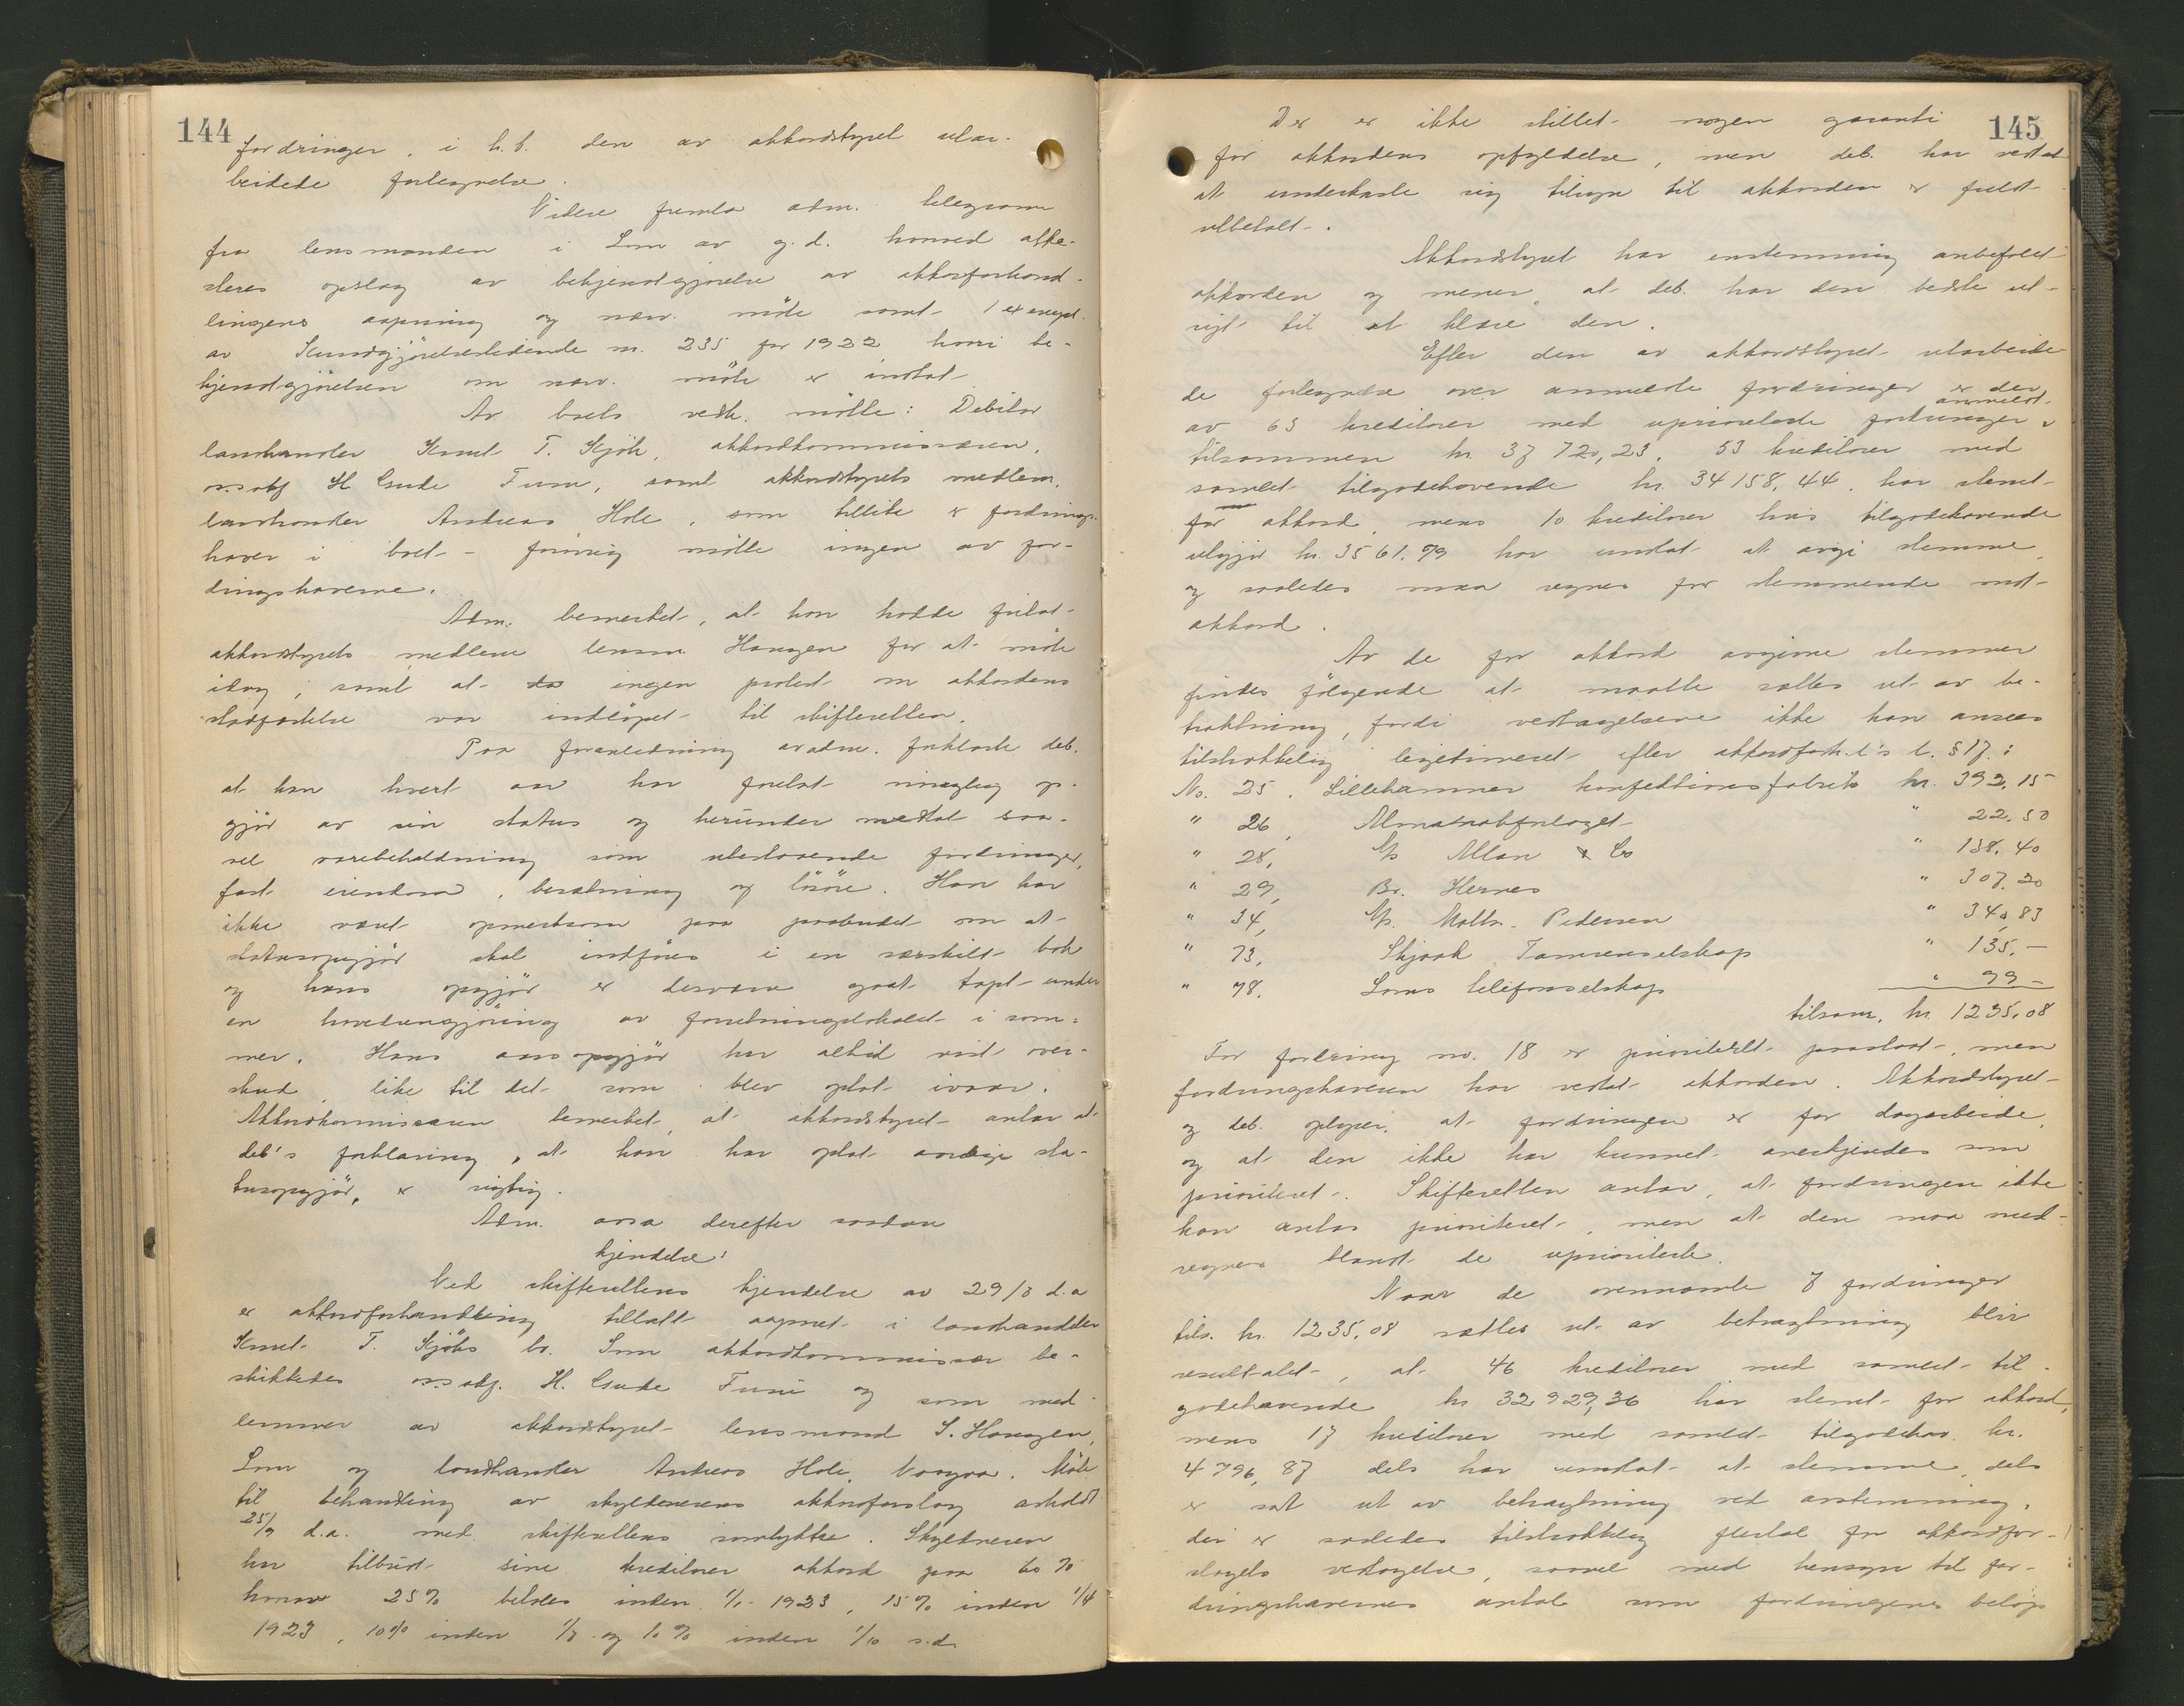 144
fordringer, i h.b. den av akkordstyret utar-
beidede fortegnelse.
Videre fremla adm. telegram
fra lensmanden i Lom av g.d. hvorved atte-
steres opslag av bekjendtgjørelse av akkordforhand-
lingens aapning og nærv. møte samt 1 exempl.
av Kundgjörelsestidende nr. 235 for 1922 hvori be-
kjendtgjörelsen om nærv. möte er indtat.
Av boets vedk. mötte: Debitor
landhandler Knut T. Kjök, akkordkommissæren,
o.r.sakf. H. Gude Furu, samt akkordstyrets medlem,
landhandler Andreas Hole, som tillike er fordrings-
haver i boet - forövrig mötte ingen av for-
dringshaverne.
Adm. bemerket, at han hadde fritat
akkordstyrets medlem lensm. Haugen for at möte
idag, samt at ingen protest om akkordens
stadfæstelse var indlöpet til skifteretten.
Paa foranledning av adm. forklarte deb.
at han hvert aar har foretat nöiagtig op-
gjör av sin status og herunder medtat saa-
vel varebeholdning som utestaaende fordringer,
fast eiendom, besætning og lösöre. Han har
ikke været opmerksom paa paabudet om at
statusopgjör skal indföres i en særskilt bok
og hans opgjör er desværre gaat tapt under
en hovedrengjöring av forretningslokalet i som-
mer. Hans aarsopgjör har altid vist over-
skud, like til det som blev optat ivaar.
Akkordkommissæren bemerket, at akkordstyret antar at
deb's forklaring, at han har optat aarlige sta-
tusopgjör, er rigtig.
Adm. avsa derefter saadan
kjendelse:
Ved skifterettens kjendelse av 29/8 d.a.
er akkordforhandling tillatt aapnet i landhandler
Knut T. Kjöks bo. Som akkordkommissær be-
skikkedes o.r.sakf. H. Gude Furu og som med-
lemmer av akkordstyret lensmand S. Haugen,
Lom og landhandler Andreas Hole, Vaagaa. Möte
til behandling av skyldnerens akkordforslag avholdt
25/9 d.a. med skifterettens samtykke. Skyldneren
har tilbudt sine kreditorer akkord paa 60 %
hvorav 25% betales inden 1/1 1923, 15% inden 1/4
1923, 10% inden 1/7 og 10% inden 1/10 s.a.
145
Der er ikke stillet nogen garanti
for akkordens opfyldelse, men deb. har vedtat
at underkaste sig tilsyn til akkorden er fuldt
utbetalt.
Akkordstyret har enstemmig anbefalet
akkorden og mener, at deb. har den bedste ut-
sigt til at klare den.
Efter den av akkordstyret utarbeide-
de fortegnelse over anmeldte fordringer er der
anmeldt
av 63 kreditorer med uprioriterte fordringer,
tilsammen kr. 37 720,23. 53 kreditorer med
samlet tilgodehavende kr. 34 158,44, har stemt
for akkord, mens 10 kreditorer hvis tilgodehavende
utgjör kr. 3561,79 har undlat at avgi stemme,
og saaledes maa regnes for stemmende mot
akkord.
Av de for akkord avgivne stemmer
findes fölgende at maatte sættes ut av be-
traktning, fordi vedtagelsene ikke kan ansees
tilstrækkelig legitimeret efter akkordforh.l's l. § 17:
No. 25, Lillehammer konfektionsfabrik kr. 392,15
" 26, Almanakforlaget " 22,50
" 28, A/s Allan & Co " 138,40
" 29, Br. Hernes " 307,20
" 34, A/s. Møller-Pedersen " 340,83
" 73, Skjaak Tømrerselskap " 135,-
" 78, Loms telefonselskap " 99 -
tilsam. kr. 1235,08
For fordring no. 18 er prioritet paastaat, men
fordringshaveren har vedtat akkorden. Akkordstyret
og deb. oplyser, at fordringen er for dagarbeide,
og at den ikke har kunnet anerkjendes som
prioritert. Skifteretten antar, at fordringen ikke
kan antas prioritert, men at den maa med-
regnes blandt de uprioriterte.
Naar de ovennævnte 7 fordringer
tils. kr. 1235,08 sættes ut av betragtning blir
resultatet, at 46 kreditorer med samlet til-
godehavende kr. 32,929,36 har stemt for akkord,
mens 17 kreditorer med samlet tilgodehav. kr.
4 796,87 dels har undlat at stemme, dels
er sat ut av betragtning ved avstemning.
der er saaledes tilstrækkelig flertal for akkordfor-
slagets vedtagelse, saavel med hensyn til for-
dringshavernes antal som fordringenes belöp